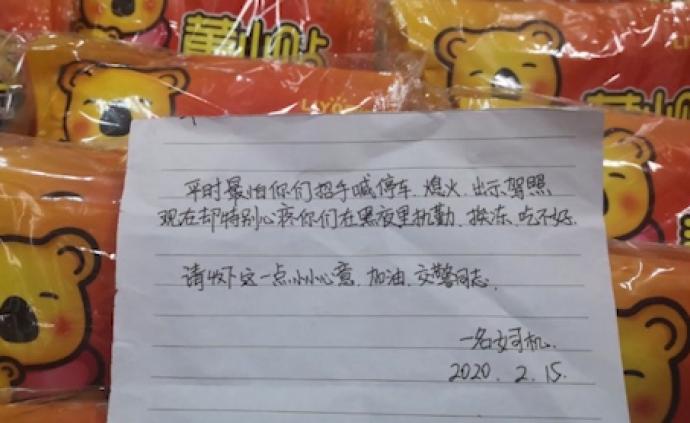 黄小贴
黄小贴
LIYO
平时最怕你们招手喊停车、熄火、出示驾照
现在却特别心疼你们在黑夜里执勤、挨冻、吃不好.
请收下这一点小小心意、加油、交警同志.
一名女司机.
2020. 2. 15.